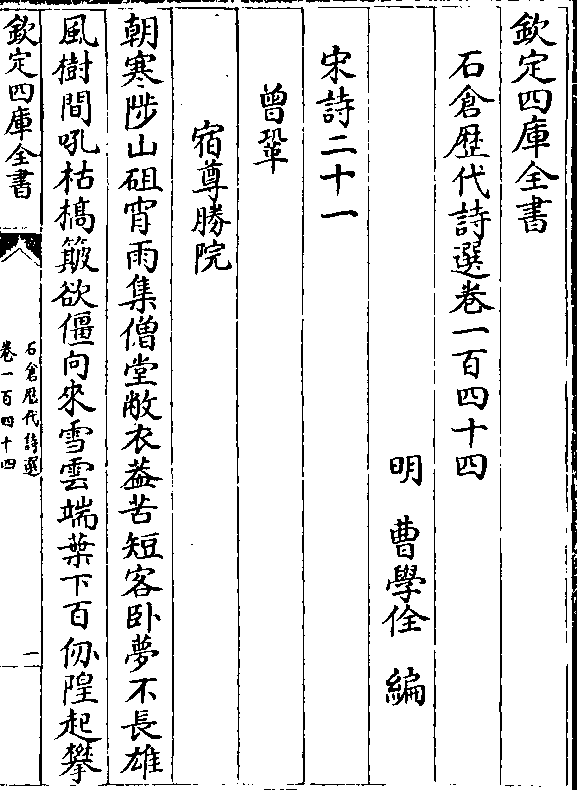 欽定四庫全書
石倉歷代詩選卷一百四十四
明 曹學佺 編
宋詩二十一
曾鞏
宿尊勝院
朝寒陟山砠宵雨集僧堂敝衣葢苦短客卧夢不長雄
風樹間吼枯槁簸欲僵向來雪雲端葉下百仭隍起攀
欽定四庫全書
石倉歷代詩選
卷一百四十四
一